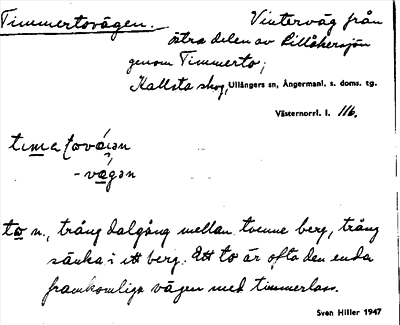 Timmertovägen. Vinterväg från
östra delen av Lillåkersjön
genom Timmerto;
Kallsta skog, Ullångers sn, Ångermanl. s. doms. tg.
Västernorrl. l. 116.
-vágan
to n., trång dalgång mellan tvenne berg, trång
sänka i ett berg. Ett to är ofta den enda
framkomliga vägen med timmerlass.
Sven Hiller 1947